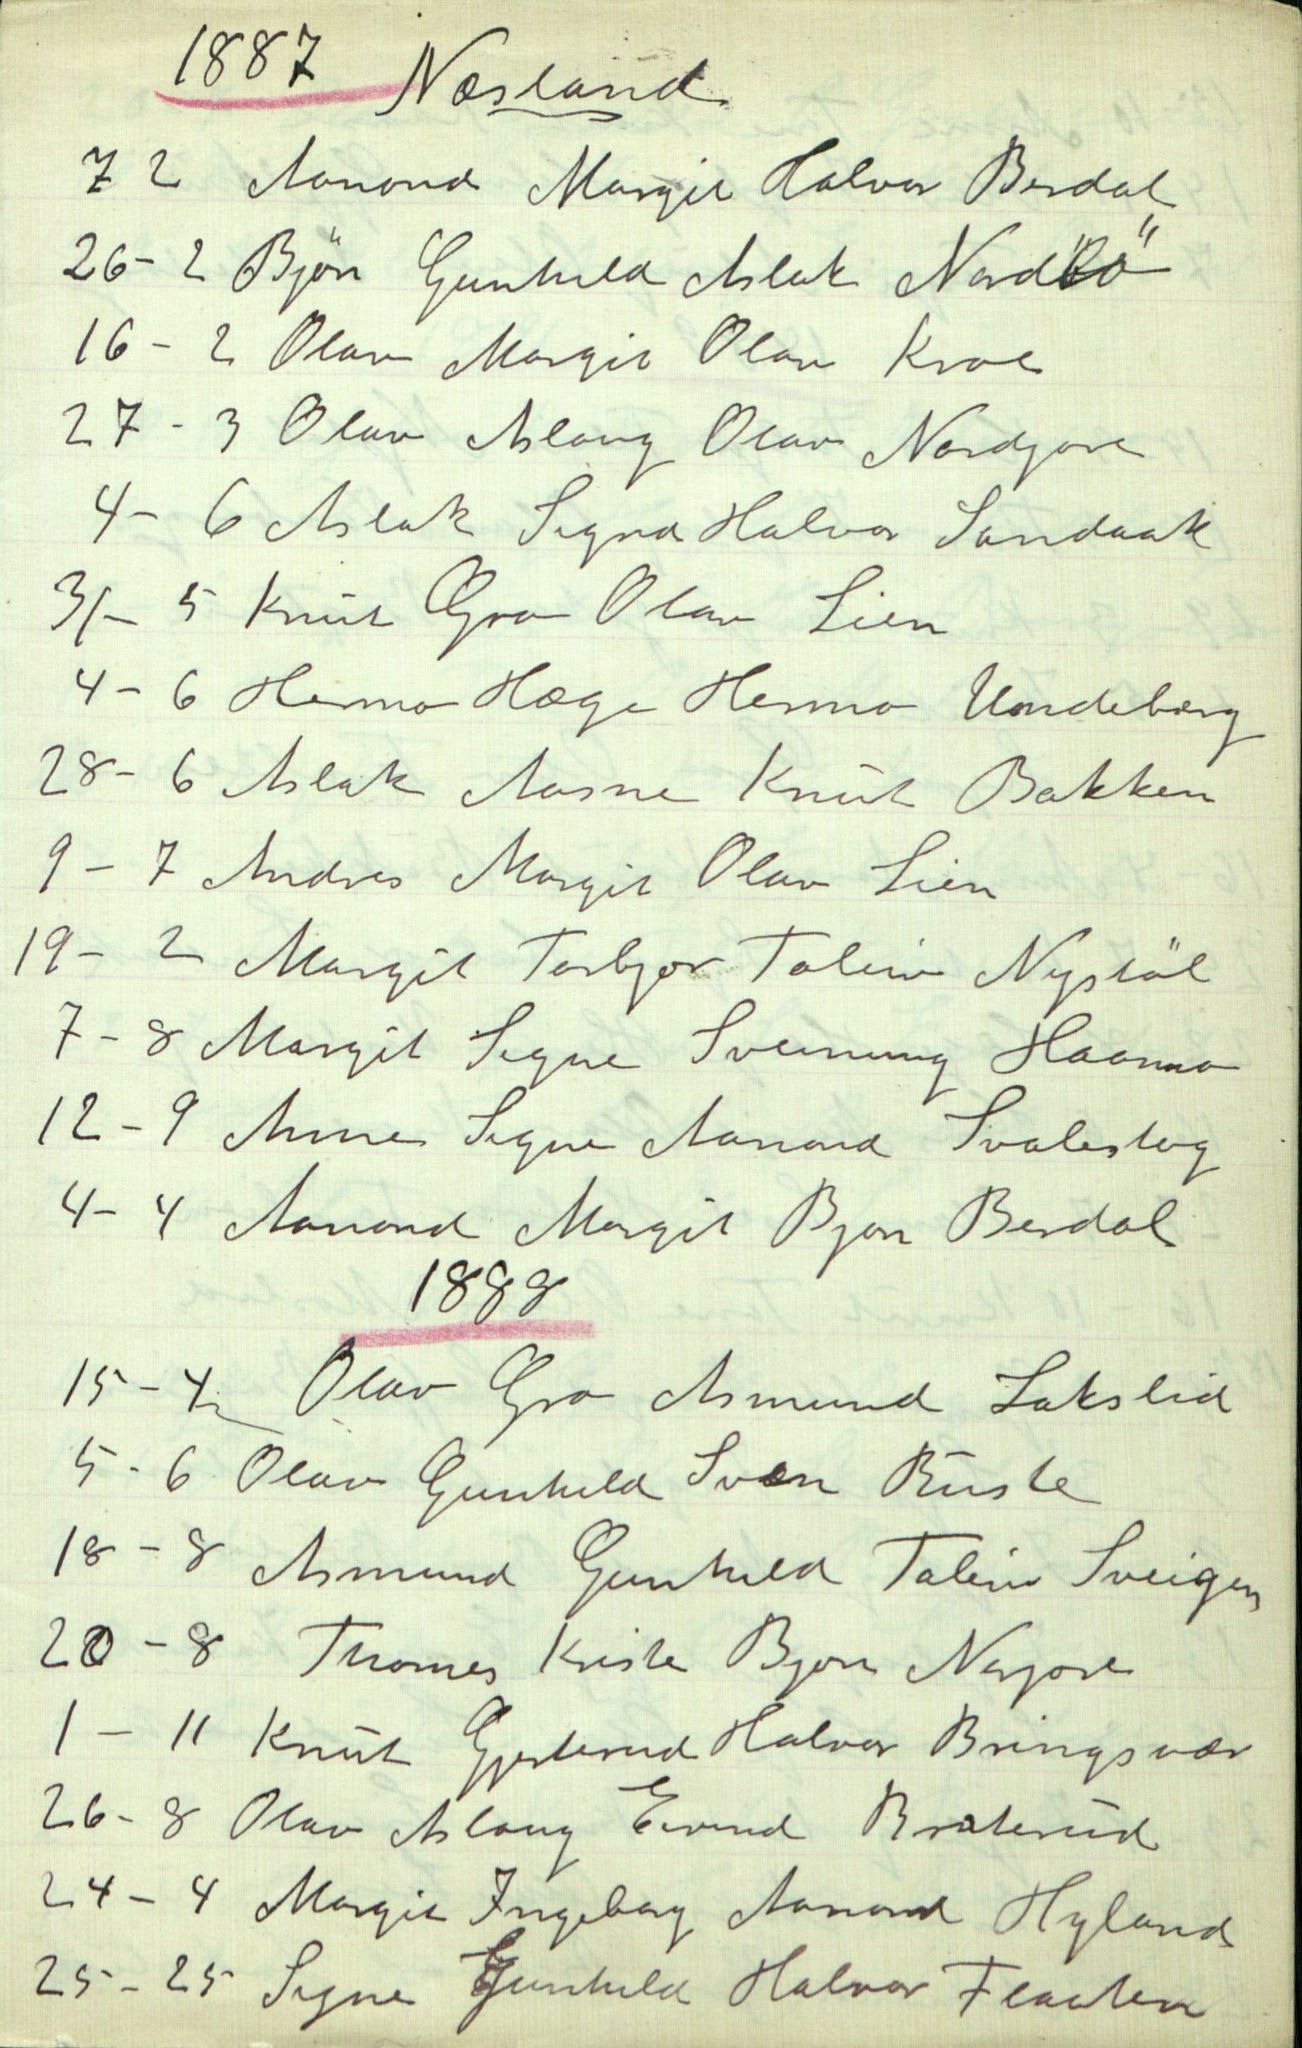 1887 Næsland
7 2 Aanond Margit Halvor Berdal
26 - 2 Bjön Gunhild Aslak Nordbö
16 - 2 Olav Margit Olav Kroe
27 - 3 Olav Aslaug Olav Nordgore
4 - 6 Aslak Signe Halvor Sandaak
31 - 5 Knut Gro Olav Lien
4 - 6 Hermo Hæge Hermo Undeberg
28 - 6 Aslak Aasne Knut Bakken
9 - 7 Andres Margit Olav Lien
19 - 2 Margit Torbjor Talleiv Nystöl
7 - 8 Margit Signe Sveinung Haamo
12 - 9 Anne Signe Aanond Svalestog
4 - 4 Aanond Margit Bjon Berdal
1888
15 - 4 Olav Gro Asmund Lakslid
5 - 6 Olav Gunhild Sven Buste
18 - 8 Asmund Gunhild Taleiv Sveigen
20 - 8 Thomes Kriste Bjon Norjore
1 - 11 Knut Gjerterud Halvor Bringsvær
26 - 8 Olav Aslaug Eivind Braterud
24 - 4 Margit Ingeborg Aanond Hyland
25 - 25 Signe Gunhild Halvor Flaaten